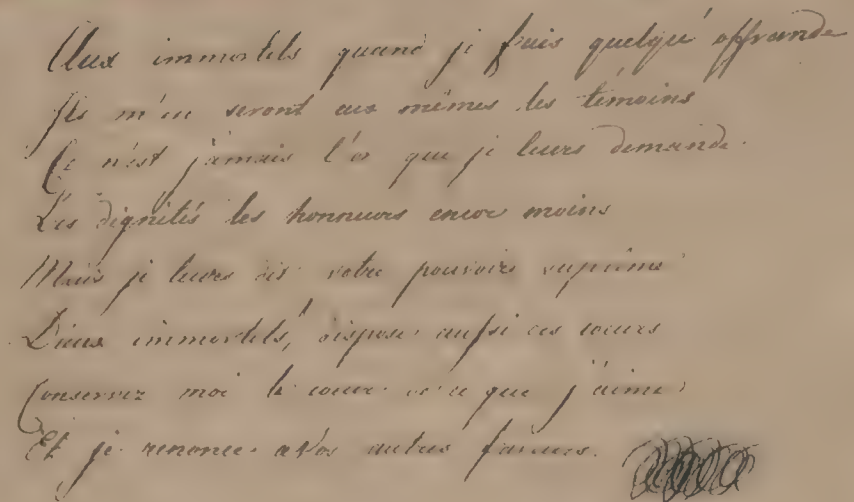 Aux immortels quand je fais quelqu' offrande
Ils m'en seront eux mêmes les témoins
Ce n'est jamais l'or que je leurs demande.
Les dignités les honneurs encor moins
Mais je leurs dis votre pouvoir suprême
Dieux immortels! dispose aussi des coeurs
Conservez moi le coeur de ce que j'aime,
Et je renonce a vos autres faveurs.